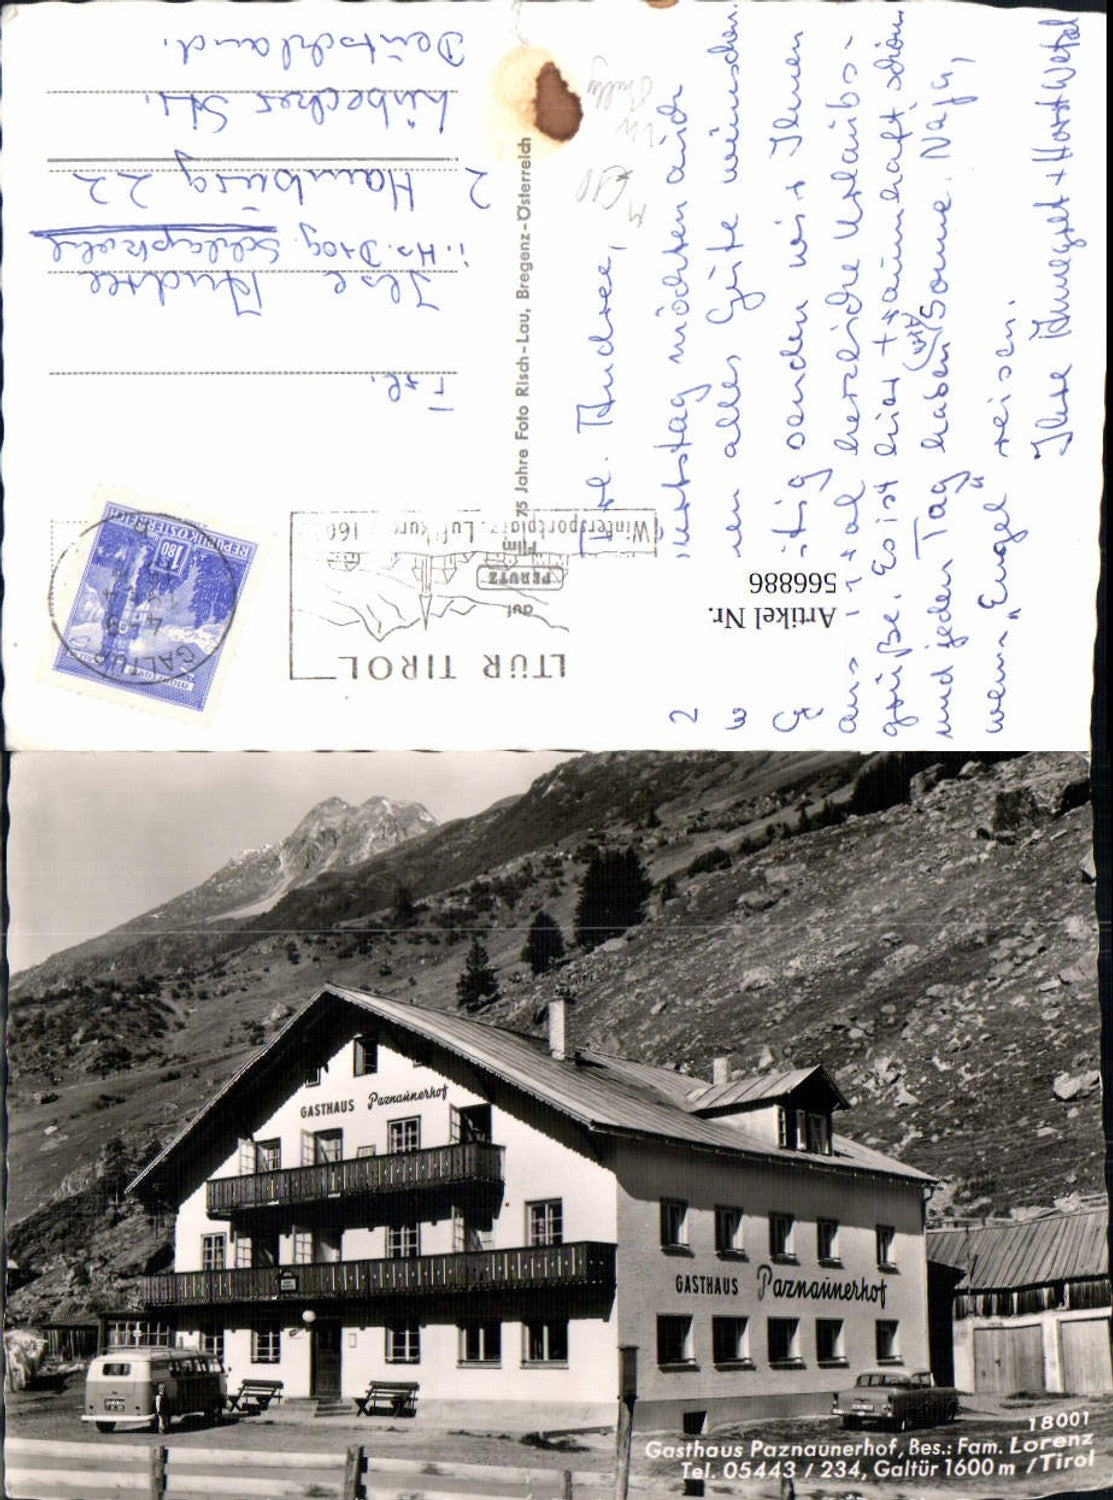 Frl.
Ilse Andree
i. Hs. Drog.
2 Hamburg 22
Lübecker Str.
Deutschland.
REPUBLIK ÖSTERREICH
1.80
GALTÜR
LTÜR TIROL
Wintersportplatz. Luftkur 160
auf
PERUTZ
Film
75 Jahre Foto Risch-Lau, Bregenz-Österreich
Artikel Nr.
566886
Frl. Andree,
urtstag möchten auch
en alles Gute wünschen.
itig senden wir Ihnen
herzliche Urlaubs-
grüße. Es ist hier traumhaft schön
und jeden Tag haben Sonne. Naja,
wenn „Engel" reisen.
Ihre Annegret + Horst Wetzel
GASTHAUS Paznaunerhof
GASTHAUS Paznaunerhof
18001
Gasthaus Paznaunerhof, Bes.: Fam. Lorenz
Tel. 05443 / 234, Galtür 1600 m / Tirol